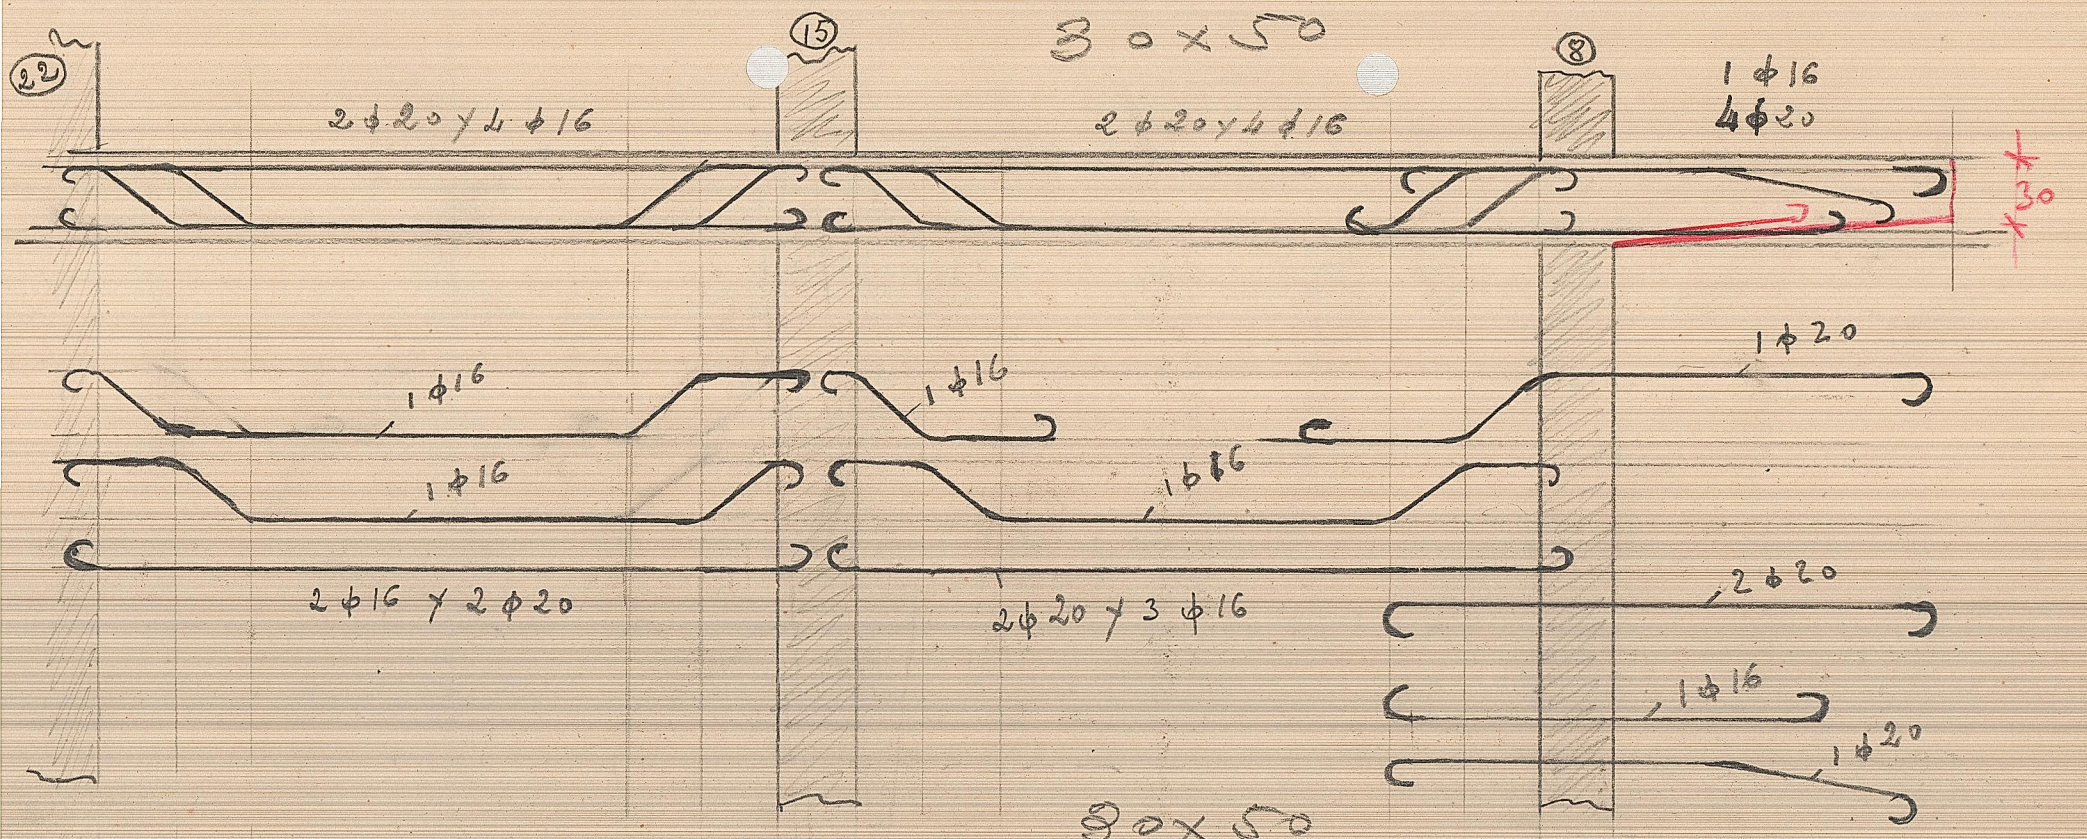 22
15
30x50
8
1 ϕ 16
4ϕ20
2ϕ20 y 4 ϕ 16
2 ϕ 20 y 4 ϕ 16
30
1 ϕ 20
1 ϕ 16
1 ϕ 16
1 ϕ 16
1 ϕ 16
2 ϕ 16 y 2 ϕ 20
2ϕ 20 y 3 ϕ 16
2 ϕ 20
1 ϕ 16
1 ϕ 20
30x50